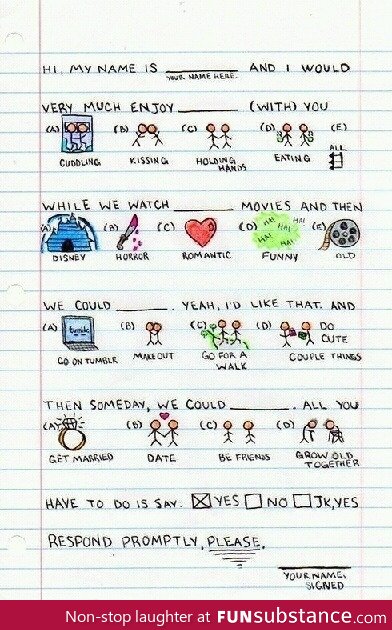 HI, MY NAME IS ________ AND I WOULD
YOUR NAME HERE.
VERY MUCH ENJOY ______ (WITH) YOU
(A) (B) (C) (D) (E)
ALL
CUDDLING KISSING HOLDING HANDS EATING
WHILE WE WATCH ______ MOVIES AND THEN
(A) (B) (C) (D) (E)
HA! HA! HA! HA! HA!
DISNEY HORROR ROMANTIC FUNNY OLD
WE COULD ______. YEAH, I'D LIKE THAT. AND
(A) (B) (C) (D) DO CUTE
tumblr.
GO ON TUMBLR MAKE OUT GO FOR A WALK COUPLE THINGS
THEN SOMEDAY, WE COULD ______. ALL YOU
(A) (B) (C) (D)
GET MARRIED DATE BE FRIENDS GROW OLD TOGETHER
HAVE TO DO IS SAY. YES NO JK, YES
RESPOND PROMPTLY, PLEASE.
YOUR NAME, SIGNED
Non-stop laughter at FUNsubstance.com